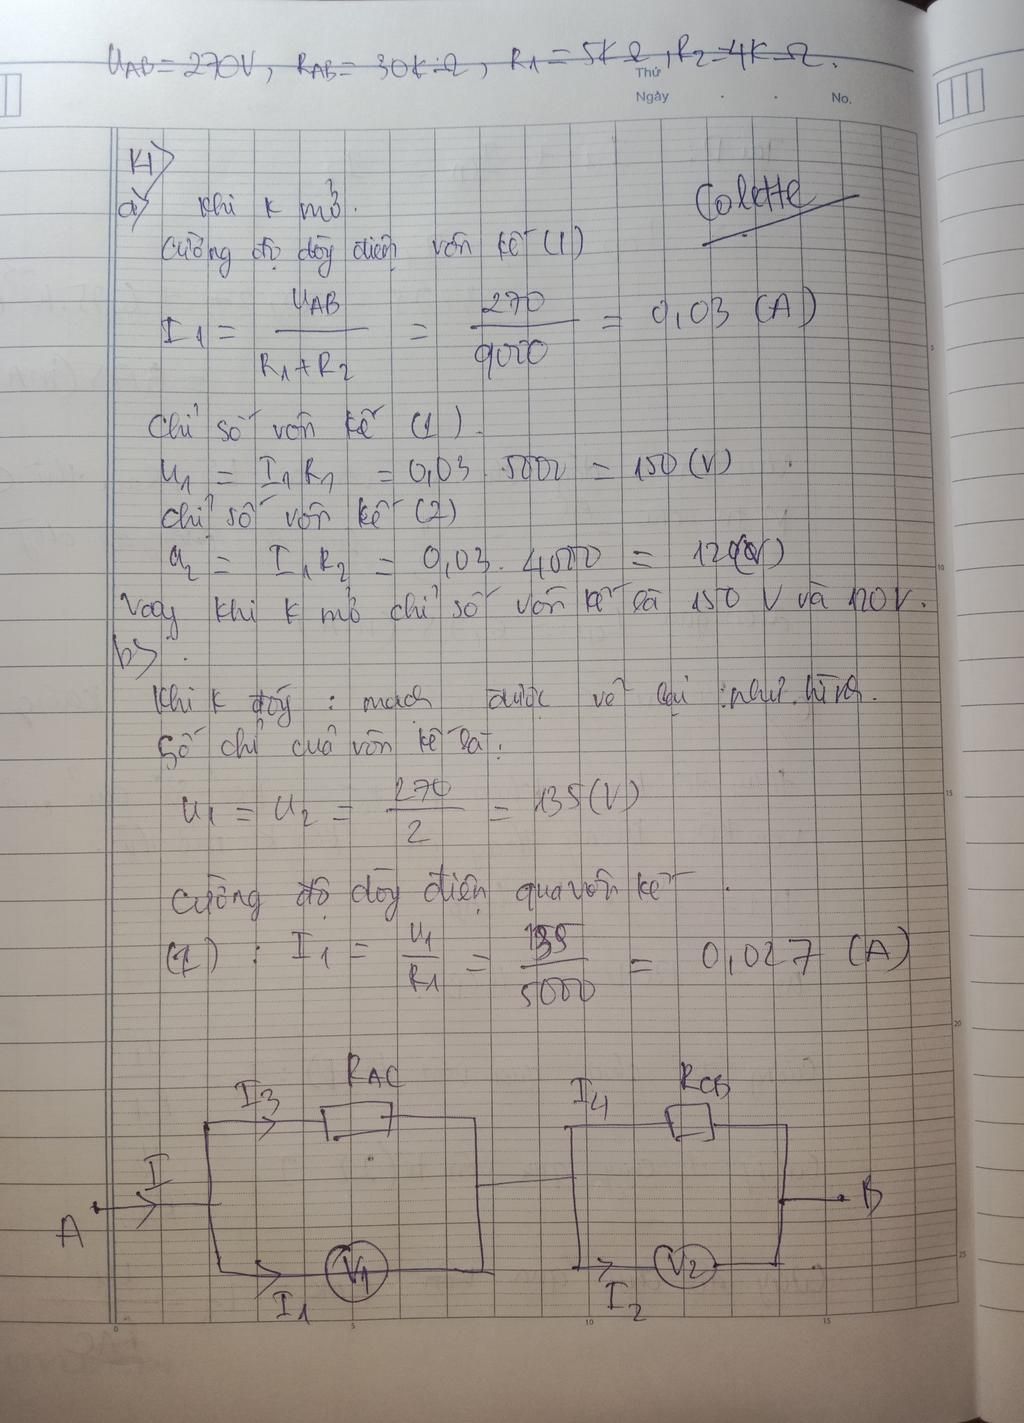 UAB = 270V, RAB = 30KΩ, R1 = 5KΩ, R2 = 4KΩ.
Thứ
Ngày . . No.
a) Khi K mở.
Colette
Cường độ dòg điện vôn kế (1)
I1 = UAB / R1 + R2 = 270 / 9000 = 0,03 (A)
Chỉ số vôn kế (1).
U1 = I1R1 = 0,03 . 5000 = 150 (V)
Chỉ số vôn kế (2)
U2 = I1R2 = 0,03 . 4000 = 120(V)
Vậy khi K mở chỉ số vôn kế là 150 V và 120V.
b)
Khi K đóg : mạch được vẽ lại như hình.
Số chỉ cuả vôn kế là:
U1 = U2 = 270 / 2 = 135 (V)
Cường độ dòg điện qua vôn kế
(1) : I1 = U1 / R1 = 135 / 5000 = 0,027 (A)
I3 RAC I4 RCB
A I B
V1 V2
I1 I2
0 5 10 15
5
10
15
20
25